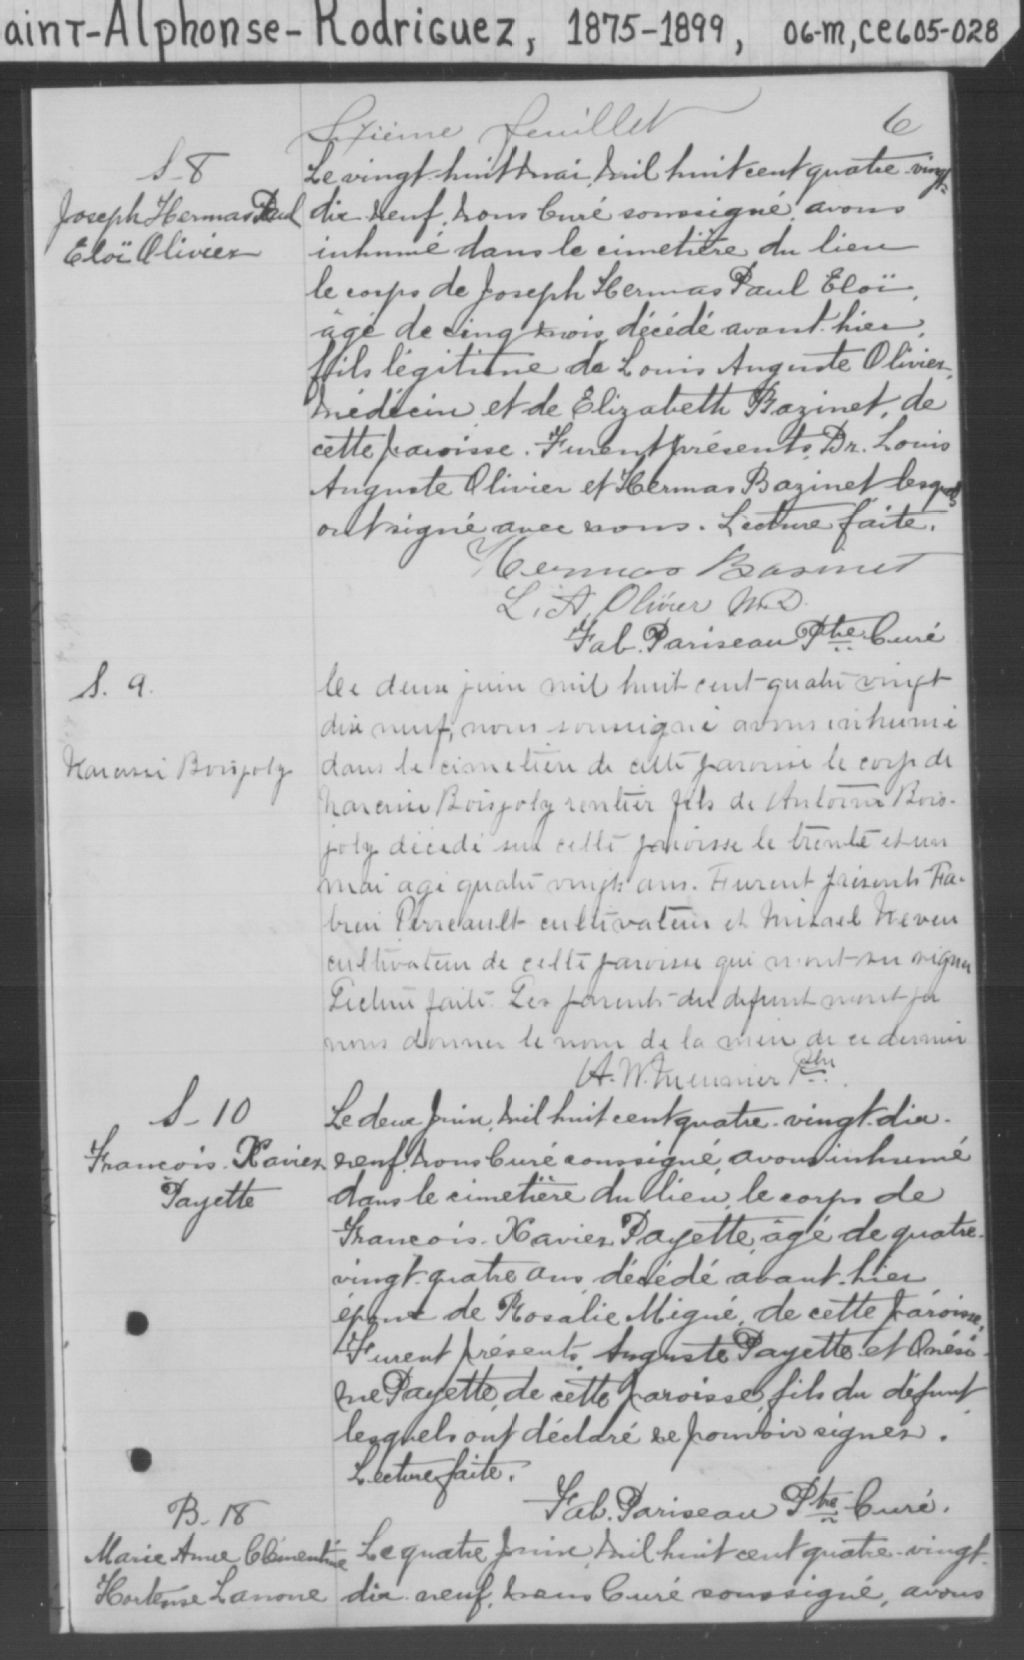 aint-Alphonse-Rodriguez, 1875-1899, 06-M, CE605-028
Sixième feuillet 6
S-8
Joseph Hermas Paul
Eloï Olivier
Le vingt-huit mai, mil huit cent quatre-vingt-
dix-neuf, nous Curé soussigné, avons
inhumé dans le cimetière du lieu
le corps de Joseph Hermas Paul Eloï,
âgé de cinq mois, décédé avant-hier,
fils légitime de Louis Auguste Olivier,
médecin et de Elizabeth Bazinet, de
cette paroisse. Furent présents, Dr. Louis
Auguste Olivier et Hermas Bazinet lesquels
ont signé avec nous. Lecture faite.
Hermas Basinet
L. A. Olivier M.D.
Fab. Pariseau Ptre Curé
S. 9.
Narcisse Boisjoly
Le deux juin mil huit cent quatre vingt
dix neuf, nous soussigné avons inhumé
dans le cimetière de cette paroisse le corps de
Narcisse Boisjoly rentier fils de Antoine Bois-
joly décédé sur cette paroisse le trente et un
mai agé quatre vingts ans. Furent présents
Perreault cultivateur et Misael Neveu
cultivateur de cette paroisse qui n'ont su signer
Lecture faite. Les parents du défunt n'ont pu
nous donner le nom de la mère de ce dernier
A. W. Meunier Ptre.
S-10
François-Xavier
Payette
Le deux Juin, mil huit cent quatre-vingt-dix-
neuf, nous Curé soussigné, avons inhumé
dans le cimetière du lieu, le corps de
François-Xavier Payette, âgé de quatre-
vingt-quatre ans, décédé avant-hier
époux de Rosalie Migué, de cette paroisse.
Furent présents, Auguste Payette et Onési-
me Payette, de cette paroisse, fils du défunt,
lesquels ont déclaré ne pouvoir signer.
Lecture faite.
Fab. Pariseau Ptre Curé.
B-18
Marie Anne Clémentine
Hortense Lanoue
Le quatre Juin, mil huit cent quatre-vingt-
dix-neuf, nous Curé soussigné, avons